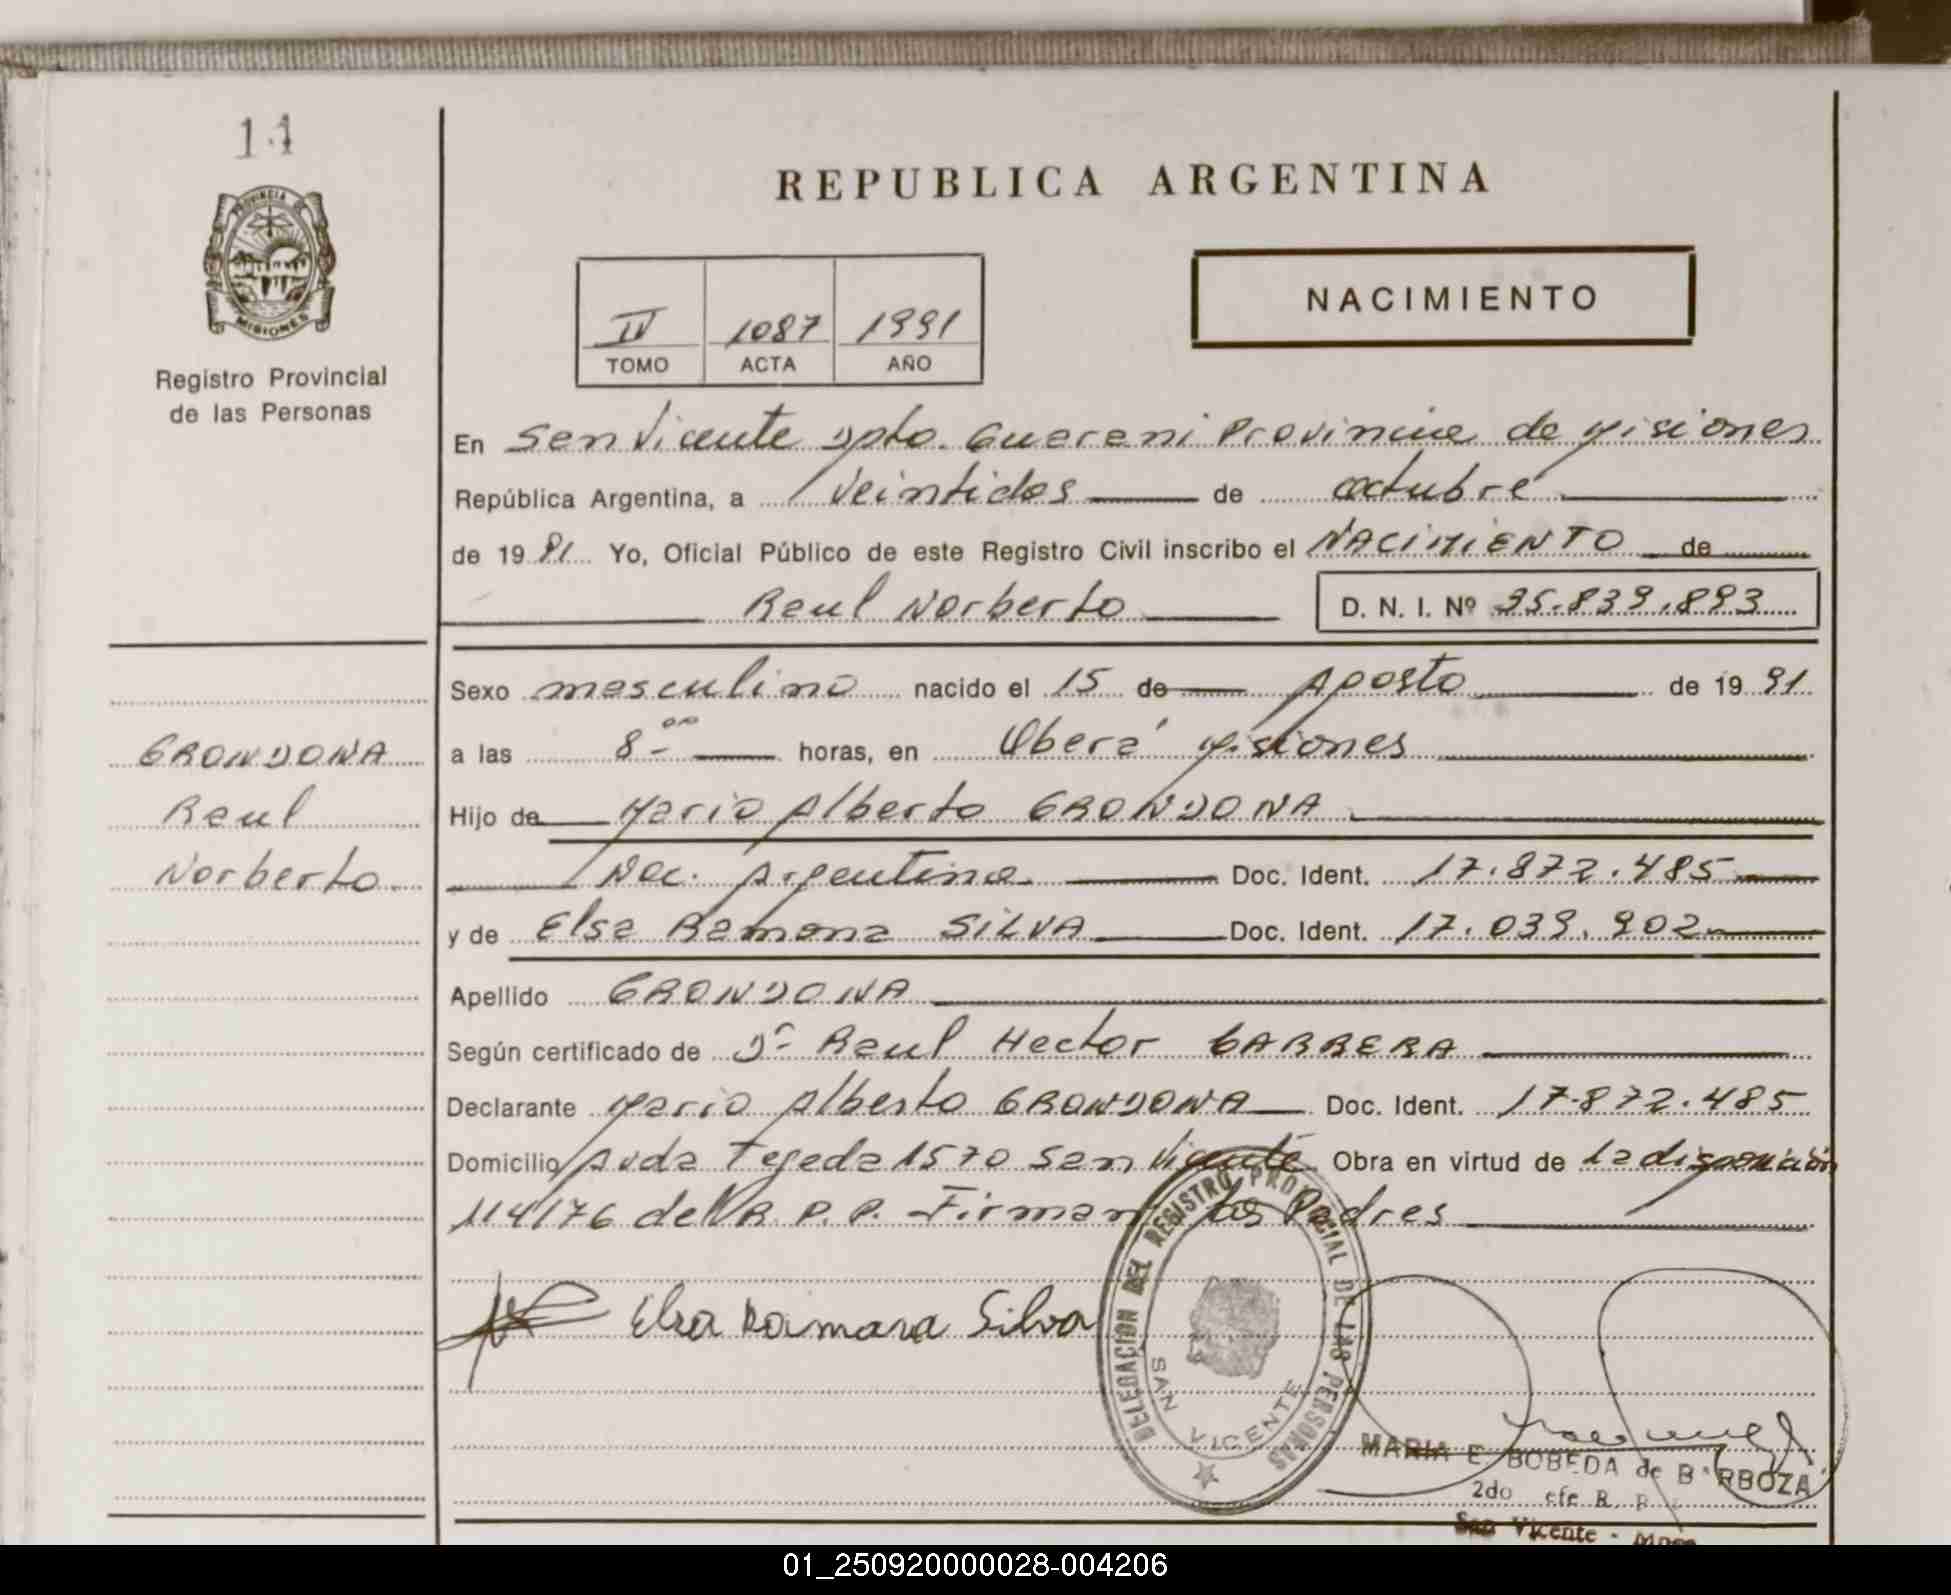 14
PROVINCIA DE
MISIONES
Registro Provincial
de las Personas
REPUBLICA ARGENTINA
IV 1087 1991
TOMO ACTA AÑO
NACIMIENTO
En San Vicente Dpto. Guarani Provincia de Misiones
República Argentina, a veintidos de octubre
de 1991 Yo, Oficial Público de este Registro Civil inscribo el NACIMIENTO de
Raul Norberto
D. N. I. Nº 35.839.893
Sexo masculino nacido el 15 de Agosto de 1991
a las 8-00 horas, en Oberá Misiones
Hijo de Mario Alberto GRONDONA
Nac. Argentina Doc. Ident. 17.872.485
y de Elsa Ramona SILVA Doc. Ident. 17.039.902
Apellido GRONDONA
Según certificado de Dr Raul Hector BARRERA
Declarante Mario Alberto GRONDONA Doc. Ident. 17.872.485
Domicilio Avda Tejeda 1570 San Vicente Obra en virtud de la disposición
114/76 del R. P. P. Firman los Padres
GRONDONA
Raul
Norberto
Elsa Ramona Silva
DELEGACION DEL REGISTRO PROVINCIAL DE LAS PERSONAS
SAN VICENTE
MARIA E. BOBEDA de BARBOZA
2do efe R. P.
San Vicente - Mnes
01_250920000028-004206